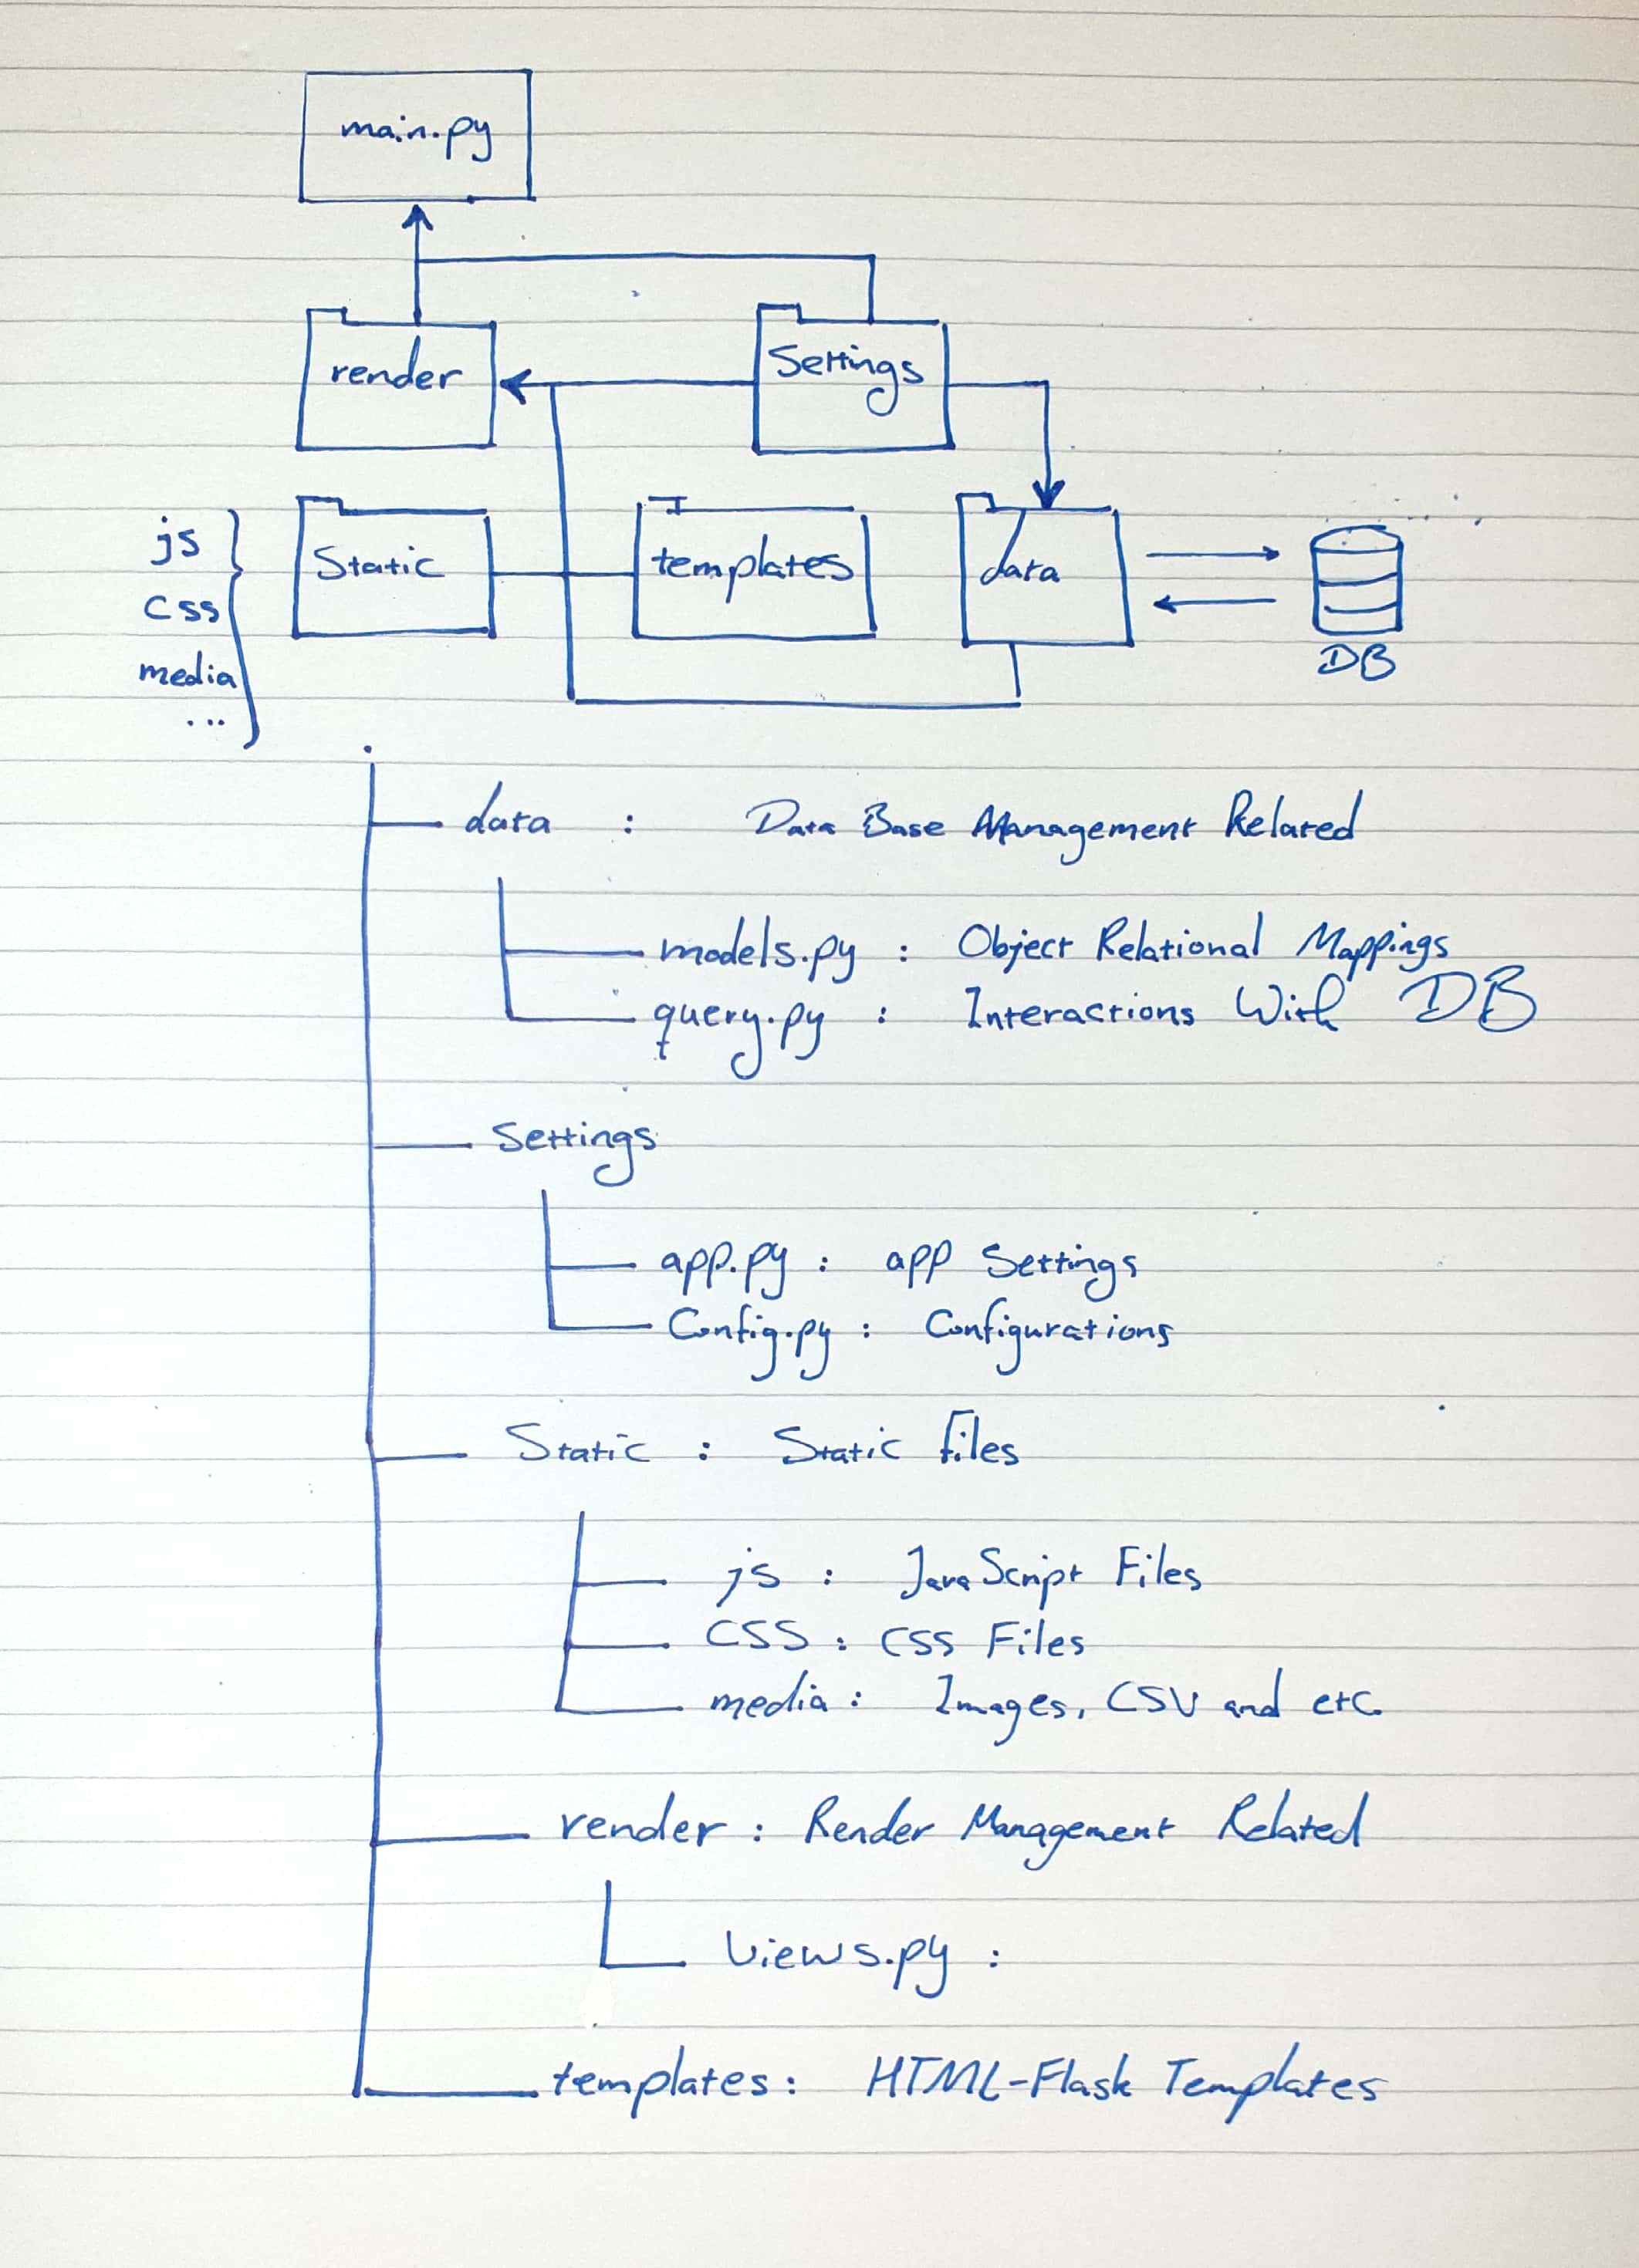 main.py
render
Settings
js
css
media
...
Static
templates
data
DB
.
data : Data Base Management Related
models.py : Object Relational Mappings
query.py : Interactions With DB
Settings
app.py : app Settings
Config.py : Configurations
Static : Static files
js : JavaScript Files
CSS : CSS Files
media : Images, CSV and etc.
render : Render Management Related
views.py :
templates : HTML-Flask Templates